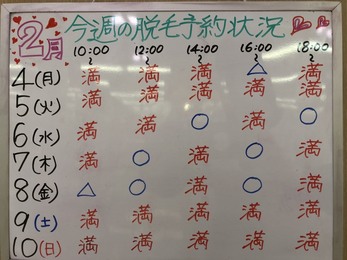 2月 今週の脱毛予約状況
10:00~ 12:00~ 14:00~ 16:00~ 18:00~
4(月) 満 満 満 △ 満
5(火) 満 満 満 満 満
6(水) 満 満 ○ 満 ○
7(木) 満 ○ 満 ○ 満
8(金) △ ○ 満 ○ 満
9(土) 満 満 満 満 満
10(日) 満 満 満 満 満